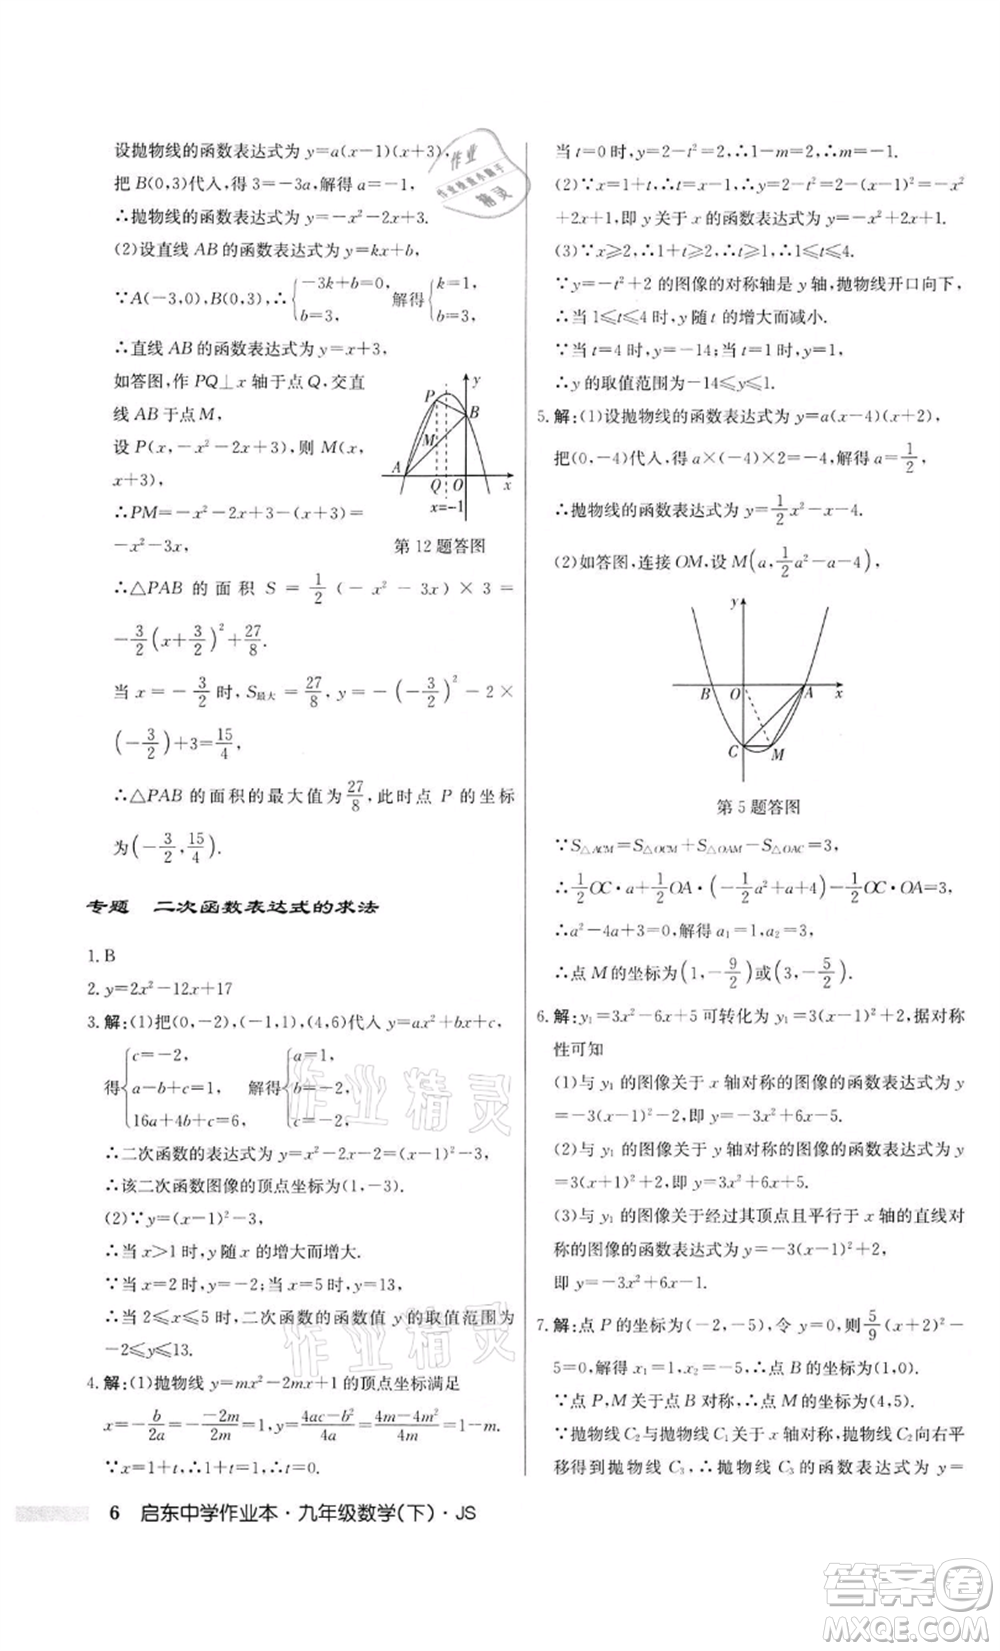 设抛物线的函数表达式为 y=a(x-1)(x+3),
把 B(0,3)代入,得 3=-3a,解得 a=-1,
∴抛物线的函数表达式为 y=-x²-2x+3.
(2)设直线 AB 的函数表达式为 y=kx+b,
∵A(-3,0),B(0,3),∴{-3k+b=0, b=3, 解得{k=1, b=3,
∴直线 AB 的函数表达式为 y=x+3,
如答图,作 PQ⊥x 轴于点 Q,交直
线 AB 于点 M,
设 P(x,-x²-2x+3),则 M(x,
x+3),
∴PM=-x²-2x+3-(x+3)=
-x²-3x,
P B M A Q O x y
x=-1
第 12 题答图
∴△PAB 的面积 S=1/2(-x²-3x)×3=
-3/2(x+3/2)²+27/8.
当 x=-3/2 时,S最大=27/8,y=-(-3/2)²-2×
(-3/2)+3=15/4,
∴△PAB 的面积的最大值为27/8,此时点 P 的坐标
为(-3/2,15/4).
专题 二次函数表达式的求法
1. B
2. y=2x²-12x+17
3. 解:(1)把(0,-2),(-1,1),(4,6)代入 y=ax²+bx+c,
得{c=-2, a-b+c=1, 16a+4b+c=6, 解得{a=1, b=-2, c=-2,
∴二次函数的表达式为 y=x²-2x-2=(x-1)²-3,
∴该二次函数图像的顶点坐标为(1,-3).
(2)∵y=(x-1)²-3,
∴当 x>1 时,y 随 x 的增大而增大.
∵当 x=2 时,y=-2;当 x=5 时,y=13,
∴当 2≤x≤5 时,二次函数的函数值 y 的取值范围为
-2≤y≤13.
4. 解:(1)抛物线 y=mx²-2mx+1的顶点坐标满足
x=-b/2a=-(-2m)/2m=1,y=(4ac-b²)/4a=(4m-4m²)/4m=1-m.
∵x=1+t,∴t=0.
当 t=0 时,y=2-t²=2,∴1-m=2,∴m=-1.
(2)∵x=1+t,∴t=x-1,∴y=2-t²=2-(x-1)²=-x²
+2x+1,即 y 关于 x 的函数表达式为 y=-x²+2x+1.
(3)∵x≥2,∴1+t≥2,∴t≥1,∴1≤t≤4.
∵y=-t²+2 的图像的对称轴是 y 轴,抛物线开口向下,
∴当 1≤t≤4 时,y 随 t 的增大而减小.
∵当 t=4 时,y=-14;当 t=1 时,y=1,
∴y 的取值范围为-14≤y≤1.
5. 解:(1)设抛物线的函数表达式为 y=a(x-4)(x+2),
把(0,-4)代入,得 a×(-4)×2=-4,解得 a=1/2,
∴抛物线的函数表达式为 y=1/2x²-x-4.
(2)如答图,连接 OM,设 M(a,1/2a²-a-4),
y B O A x C M
第 5 题答图
∵S△ACM=S△OCM+S△OAM-S△OAC=3,
∴1/2OC·a+1/2OA·(-1/2a²+a+4)-1/2OC·OA=3,
∴a²-4a+3=0,解得 a₁=1,a₂=3,
∴点 M 的坐标为(1,-9/2)或(3,-5/2).
6. 解:y₁=3x²-6x+5 可转化为 y₁=3(x-1)²+2,据对称
性可知
(1)与 y₁ 的图像关于 x 轴对称的图像的函数表达式为 y
=-3(x-1)²-2,即 y=-3x²+6x-5.
(2)与 y₁ 的图像关于 y 轴对称的图像的函数表达式为 y
=3(x+1)²+2,即 y=3x²+6x+5.
(3)与 y₁ 的图像关于经过其顶点且平行于 x 轴的直线对
称的图像的函数表达式为 y=-3(x-1)²+2,
即 y=-3x²+6x-1.
7. 解:点 P 的坐标为(-2,-5),令 y=0,则5/9(x+2)²-
5=0,解得 x₁=1,x₂=-5,∴点 B 的坐标为(1,0).
∵点 P,M 关于点 B 对称,∴点 M 的坐标为(4,5).
∵抛物线 C₂与抛物线 C₁关于 x 轴对称,抛物线 C₂向右平
移得到抛物线 C₃,∴抛物线 C₃的函数表达式为 y=
6 启东中学作业本·九年级数学(下)·JS
作业精灵
作业精灵
作业
作业检查小助手
精灵
答案圈
MXQE.COM